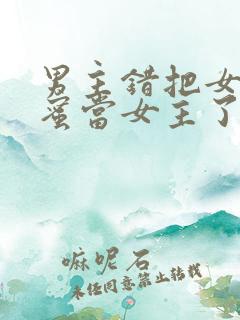 男主錯把女
蜜當女主了
嘛呢石
未经同意禁止转载